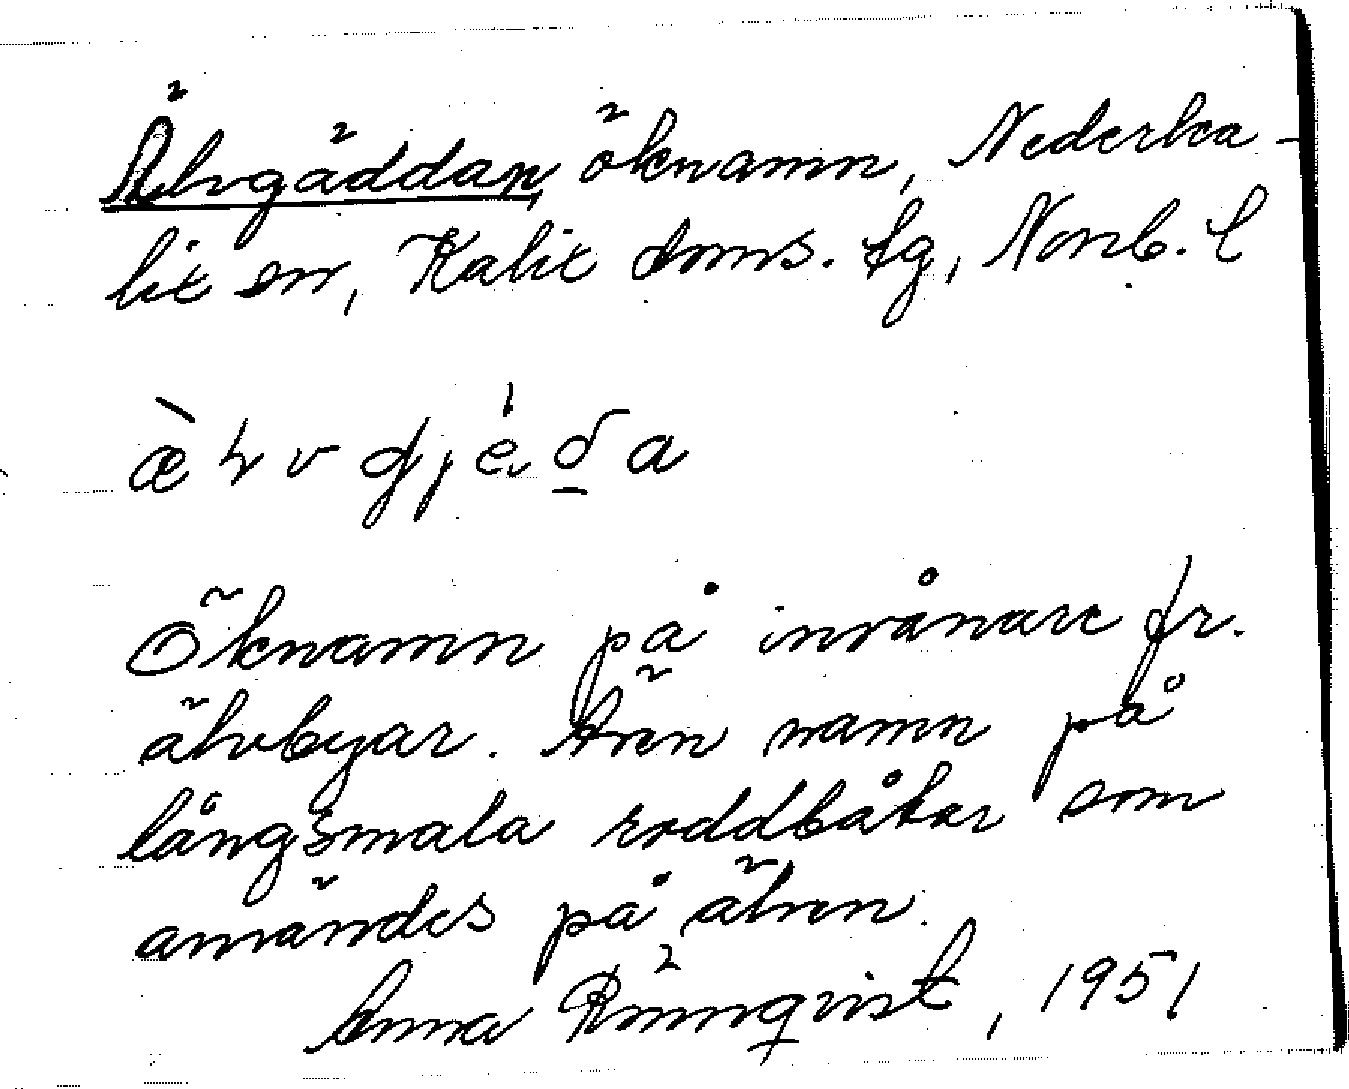 Älvgäddan, öknamn, Nederka-
lix sn, Kalix doms. tg, Norrb. l
Öknamn på invånare fr.
älvbyar. Även namn på
långsmala roddbåtar som
användes på älven.
Anna Rönnqvist, 1951